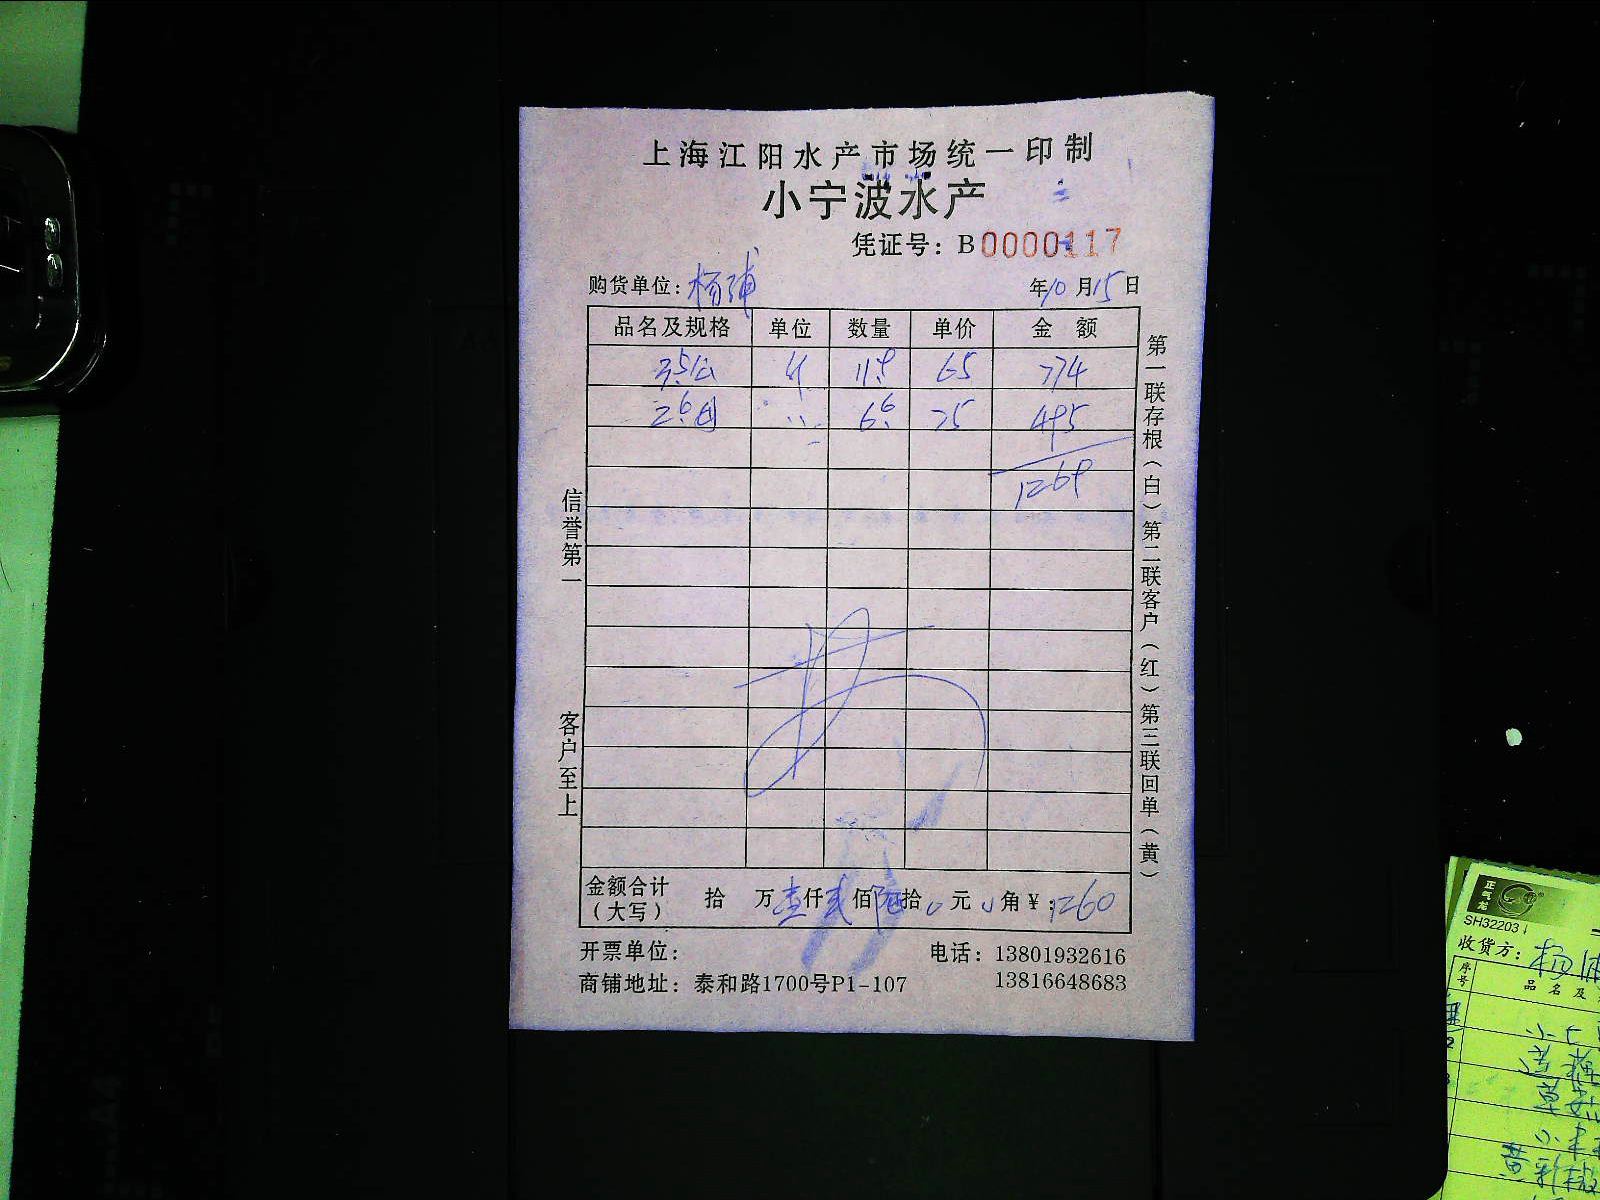 上海江阳水产市场统一印制
小宁波水产
凭证号：B0000117
购货单位：杨浦 年10月15日
品名及规格 单位 数量 单价 金 额
3.5公 斤 11.9 65 774
2.6母 〃 6.6 75 495
1269
金额合计（大写） 拾 万壹仟贰佰陆拾0元0角¥：1260
开票单位： 电话：13801932616
商铺地址：泰和路1700号P1-107 13816648683
信誉第一
客户至上
第一联存根（白）第二联客户（红）第三联回单（黄）
正气龙
SH32203
收货方：杨浦
序号 品 名 及